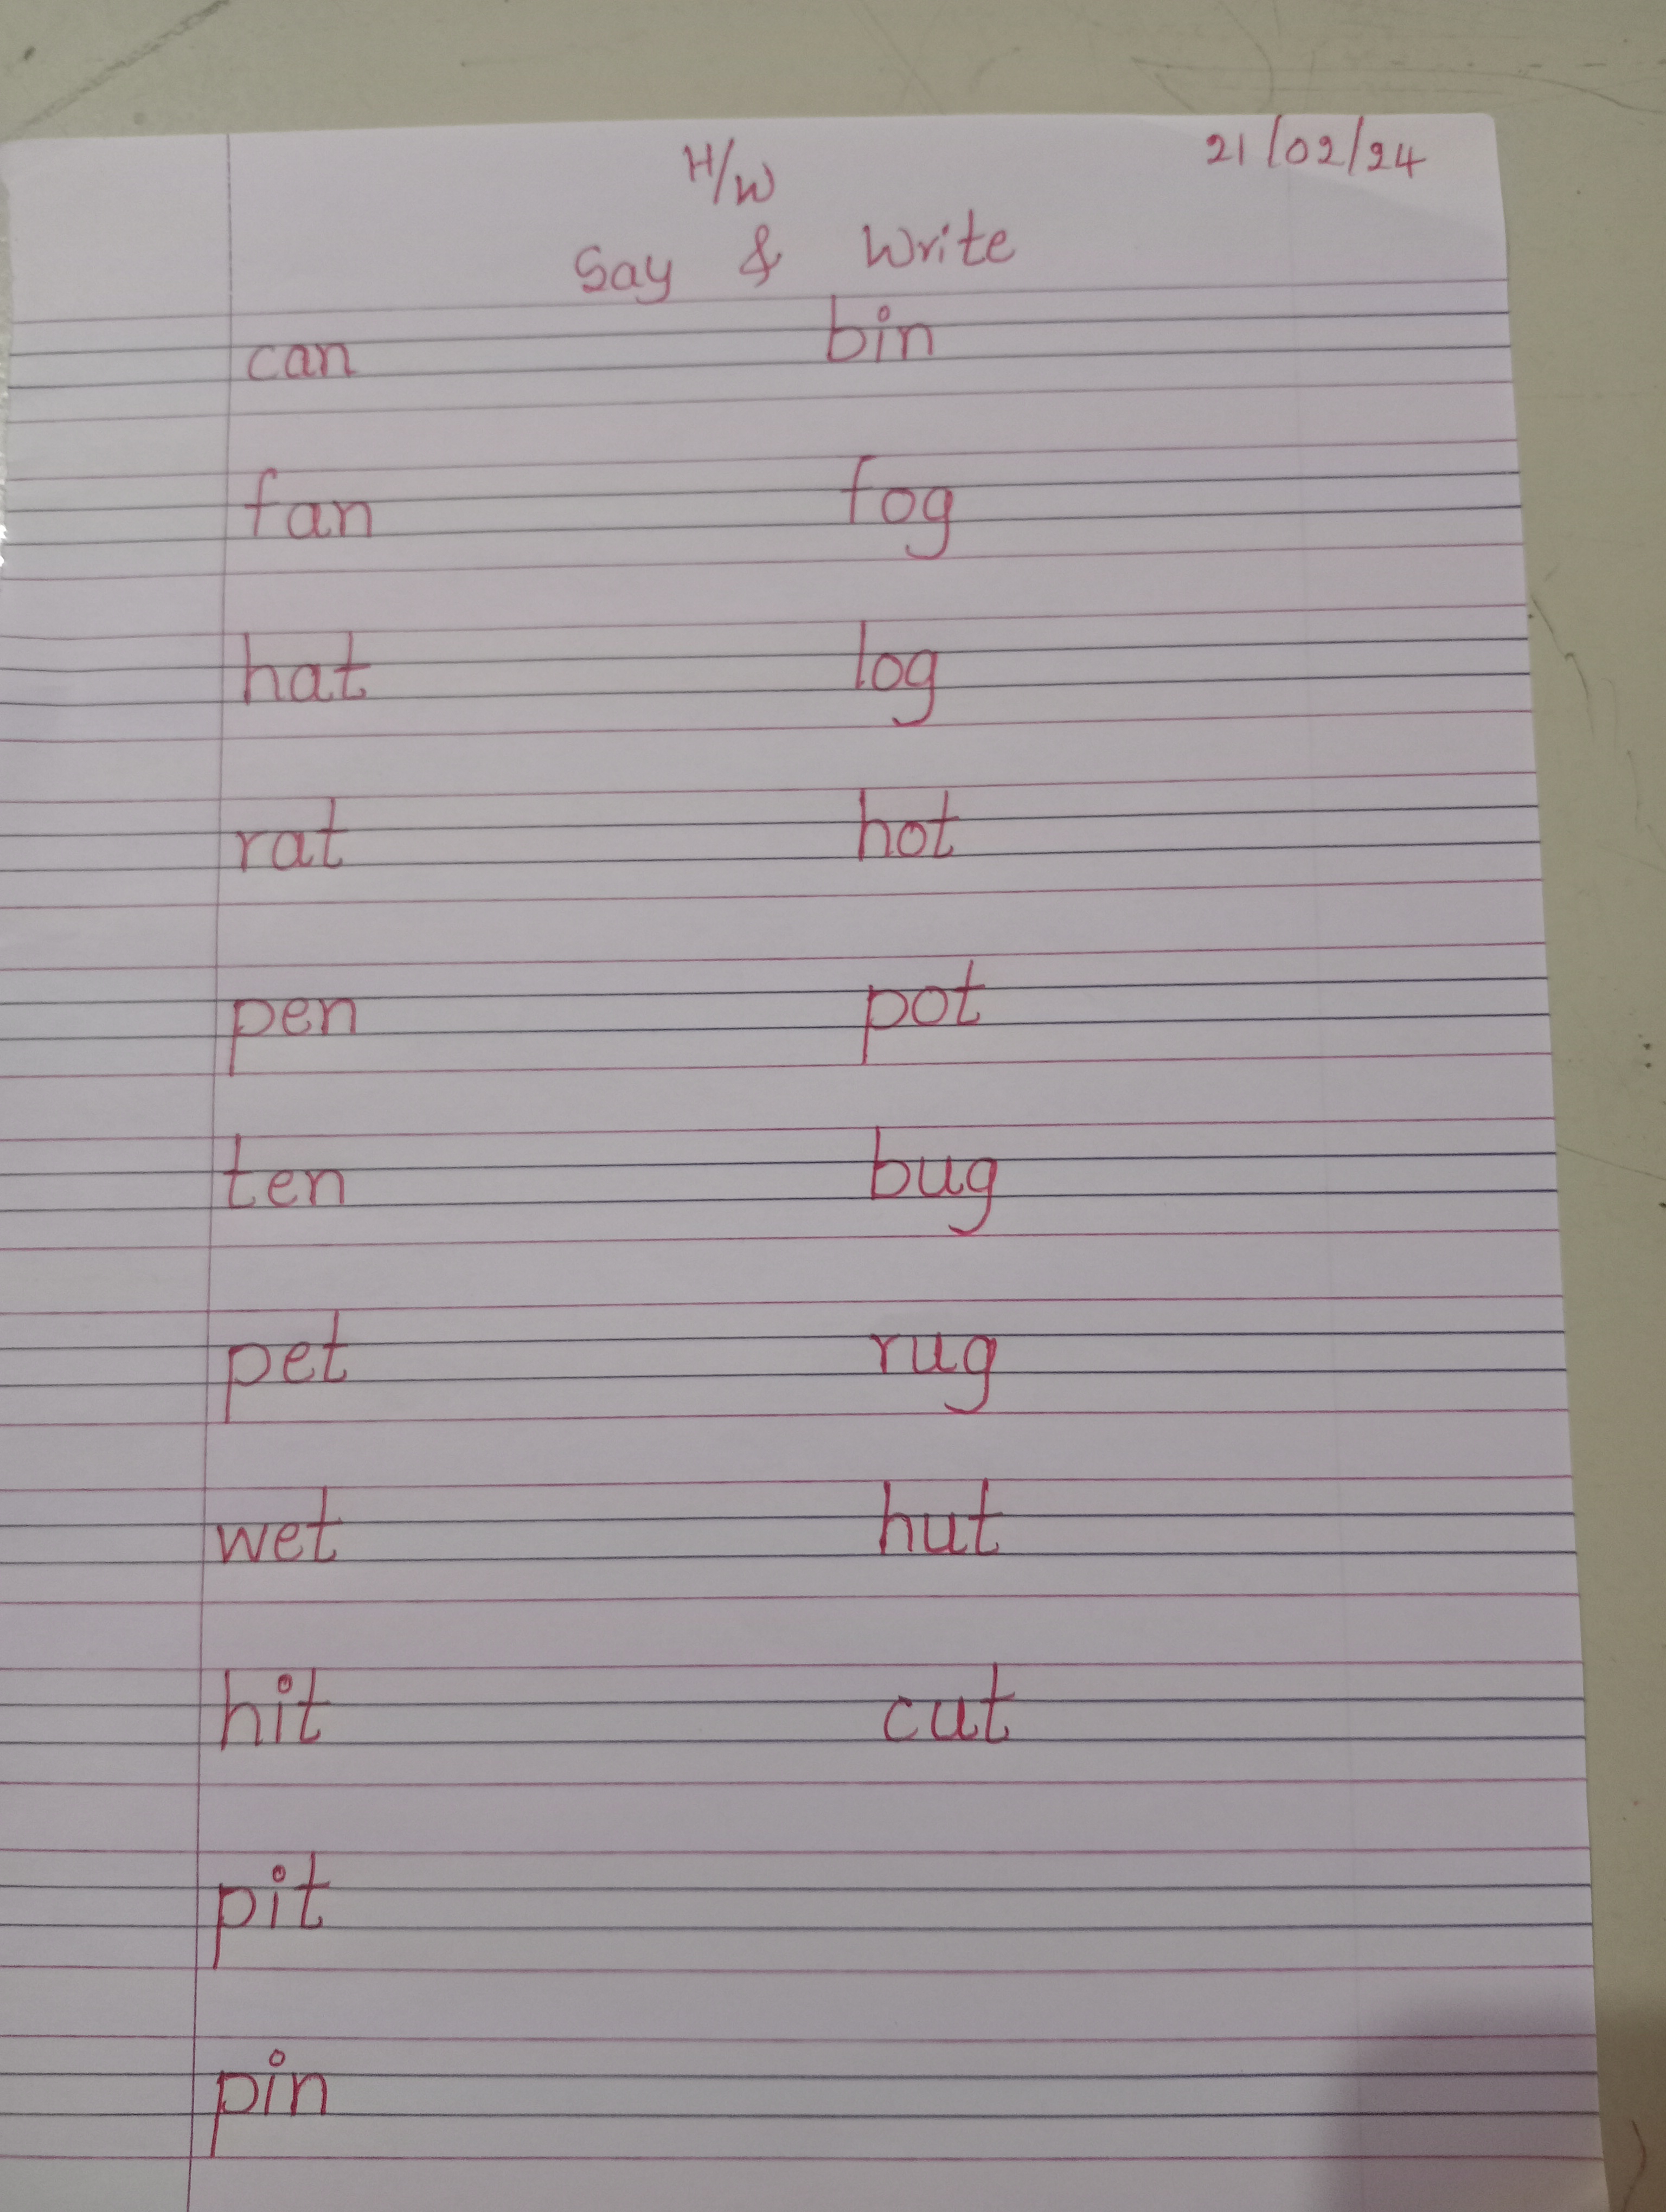 H/W 21/02/24
Say & Write
can bin
fan fog
hat log
rat hot
pen pot
ten bug
pet rug
wet hut
hit cut
pit
pin